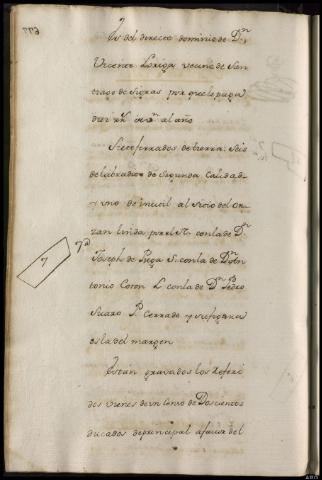 Es del directo dominio de Dn
Vicente Loriga vecino de San
tiago de Sigras por que le paga
diez rs von al año
Siete ferrados de tierra: Seis
de labradio de segunda Calidad
y uno de inutil al sitio del
zan linda por el N. con la de Dn
Joseph de Puga S. con la de Dn An
tonio Coron L. con la de Dn Pedro
Suaro P. Cerrado y su figura
es la del margen
7a
7
Estan gravados los referi
dos vienes de un Censo de Doscientos
ducados de principal a favor del